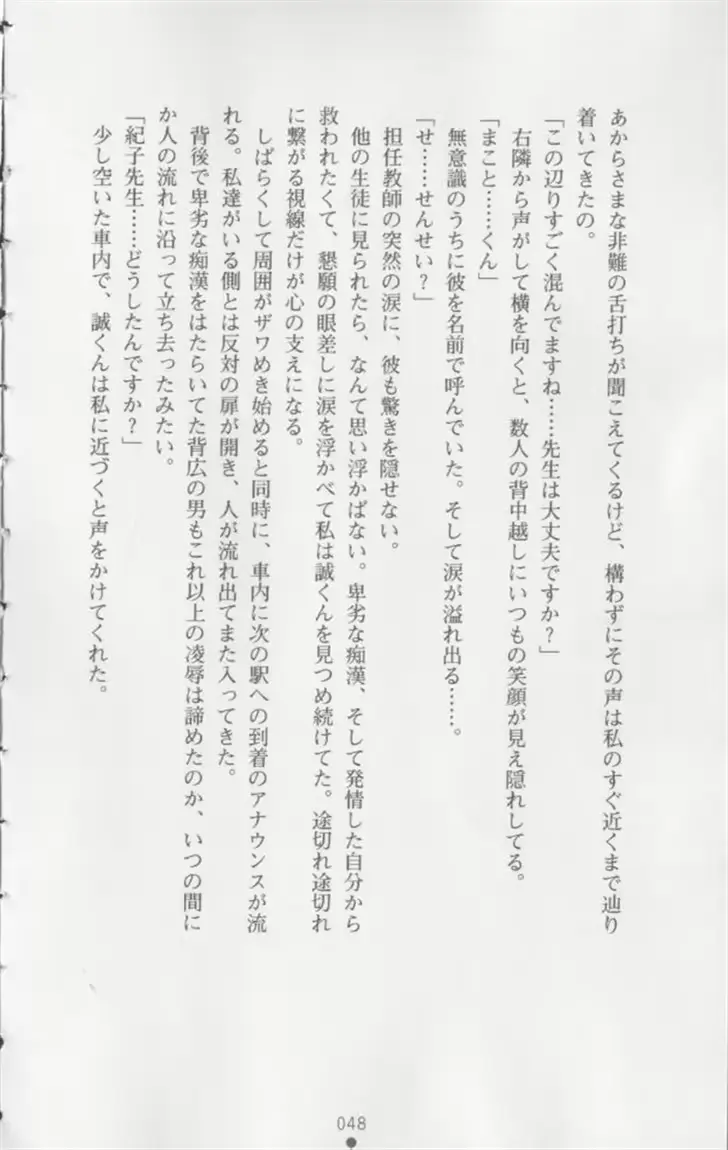 あからさまな非難の舌打ちが聞こえてくるけど、構わずにその声は私のすぐ近くまで辿り
着いてきたの。
「この辺りすごく混んでますね……先生は大丈夫ですか？」
右隣から声がして横を向くと、数人の背中越しにいつもの笑顔が見え隠れしてる。
「まこと……くん」
無意識のうちに彼を名前で呼んでいた。そして涙が溢れ出る……。
「せ……せんせい？」
担任教師の突然の涙に、彼も驚きを隠せない。
他の生徒に見られたら、なんて思い浮かばない。卑劣な痴漢、そして発情した自分から
救われたくて、懇願の眼差しに涙を浮かべて私は誠くんを見つめ続けてた。途切れ途切れ
に繋がる視線だけが心の支えになる。
しばらくして周囲がザワめき始めると同時に、車内に次の駅への到着のアナウンスが流
れる。私達がいる側とは反対の扉が開き、人が流れ出てまた入ってきた。
背後で卑劣な痴漢をはたらいてた背広の男もこれ以上の凌辱は諦めたのか、いつの間に
か人の流れに沿って立ち去ったみたい。
「紀子先生……どうしたんですか？」
少し空いた車内で、誠くんは私に近づくと声をかけてくれた。
048